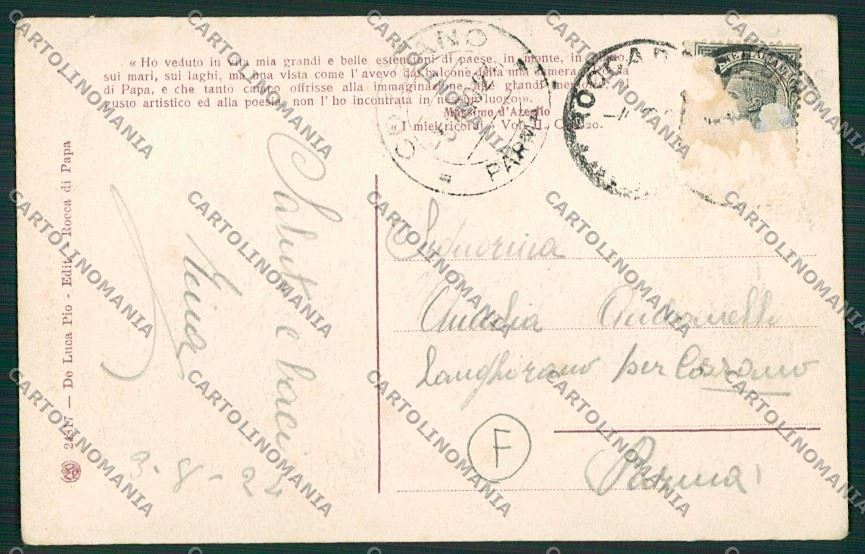 « Ho veduto in vita mia grandi e belle estensioni di paese, in monte, in piano,
sui mari, sui laghi, ma una vista come l'avevo dal balcone della mia camera a Rocca
di Papa, e che tanto campo offrisse alla immaginazione, alle grandi memorie, al
gusto artistico ed alla poesia, non l'ho incontrata in nessun luogo».
Massimo d'Azeglio
« I miei ricordi » Vol. II. C.
PARMA
24317 — De Luca Pio - Edit. - Rocca di Papa
Saluti e baci
3-8-24
Signorina
Langhirano per Cozzano
Parma
F
CARTOLINOMANIA